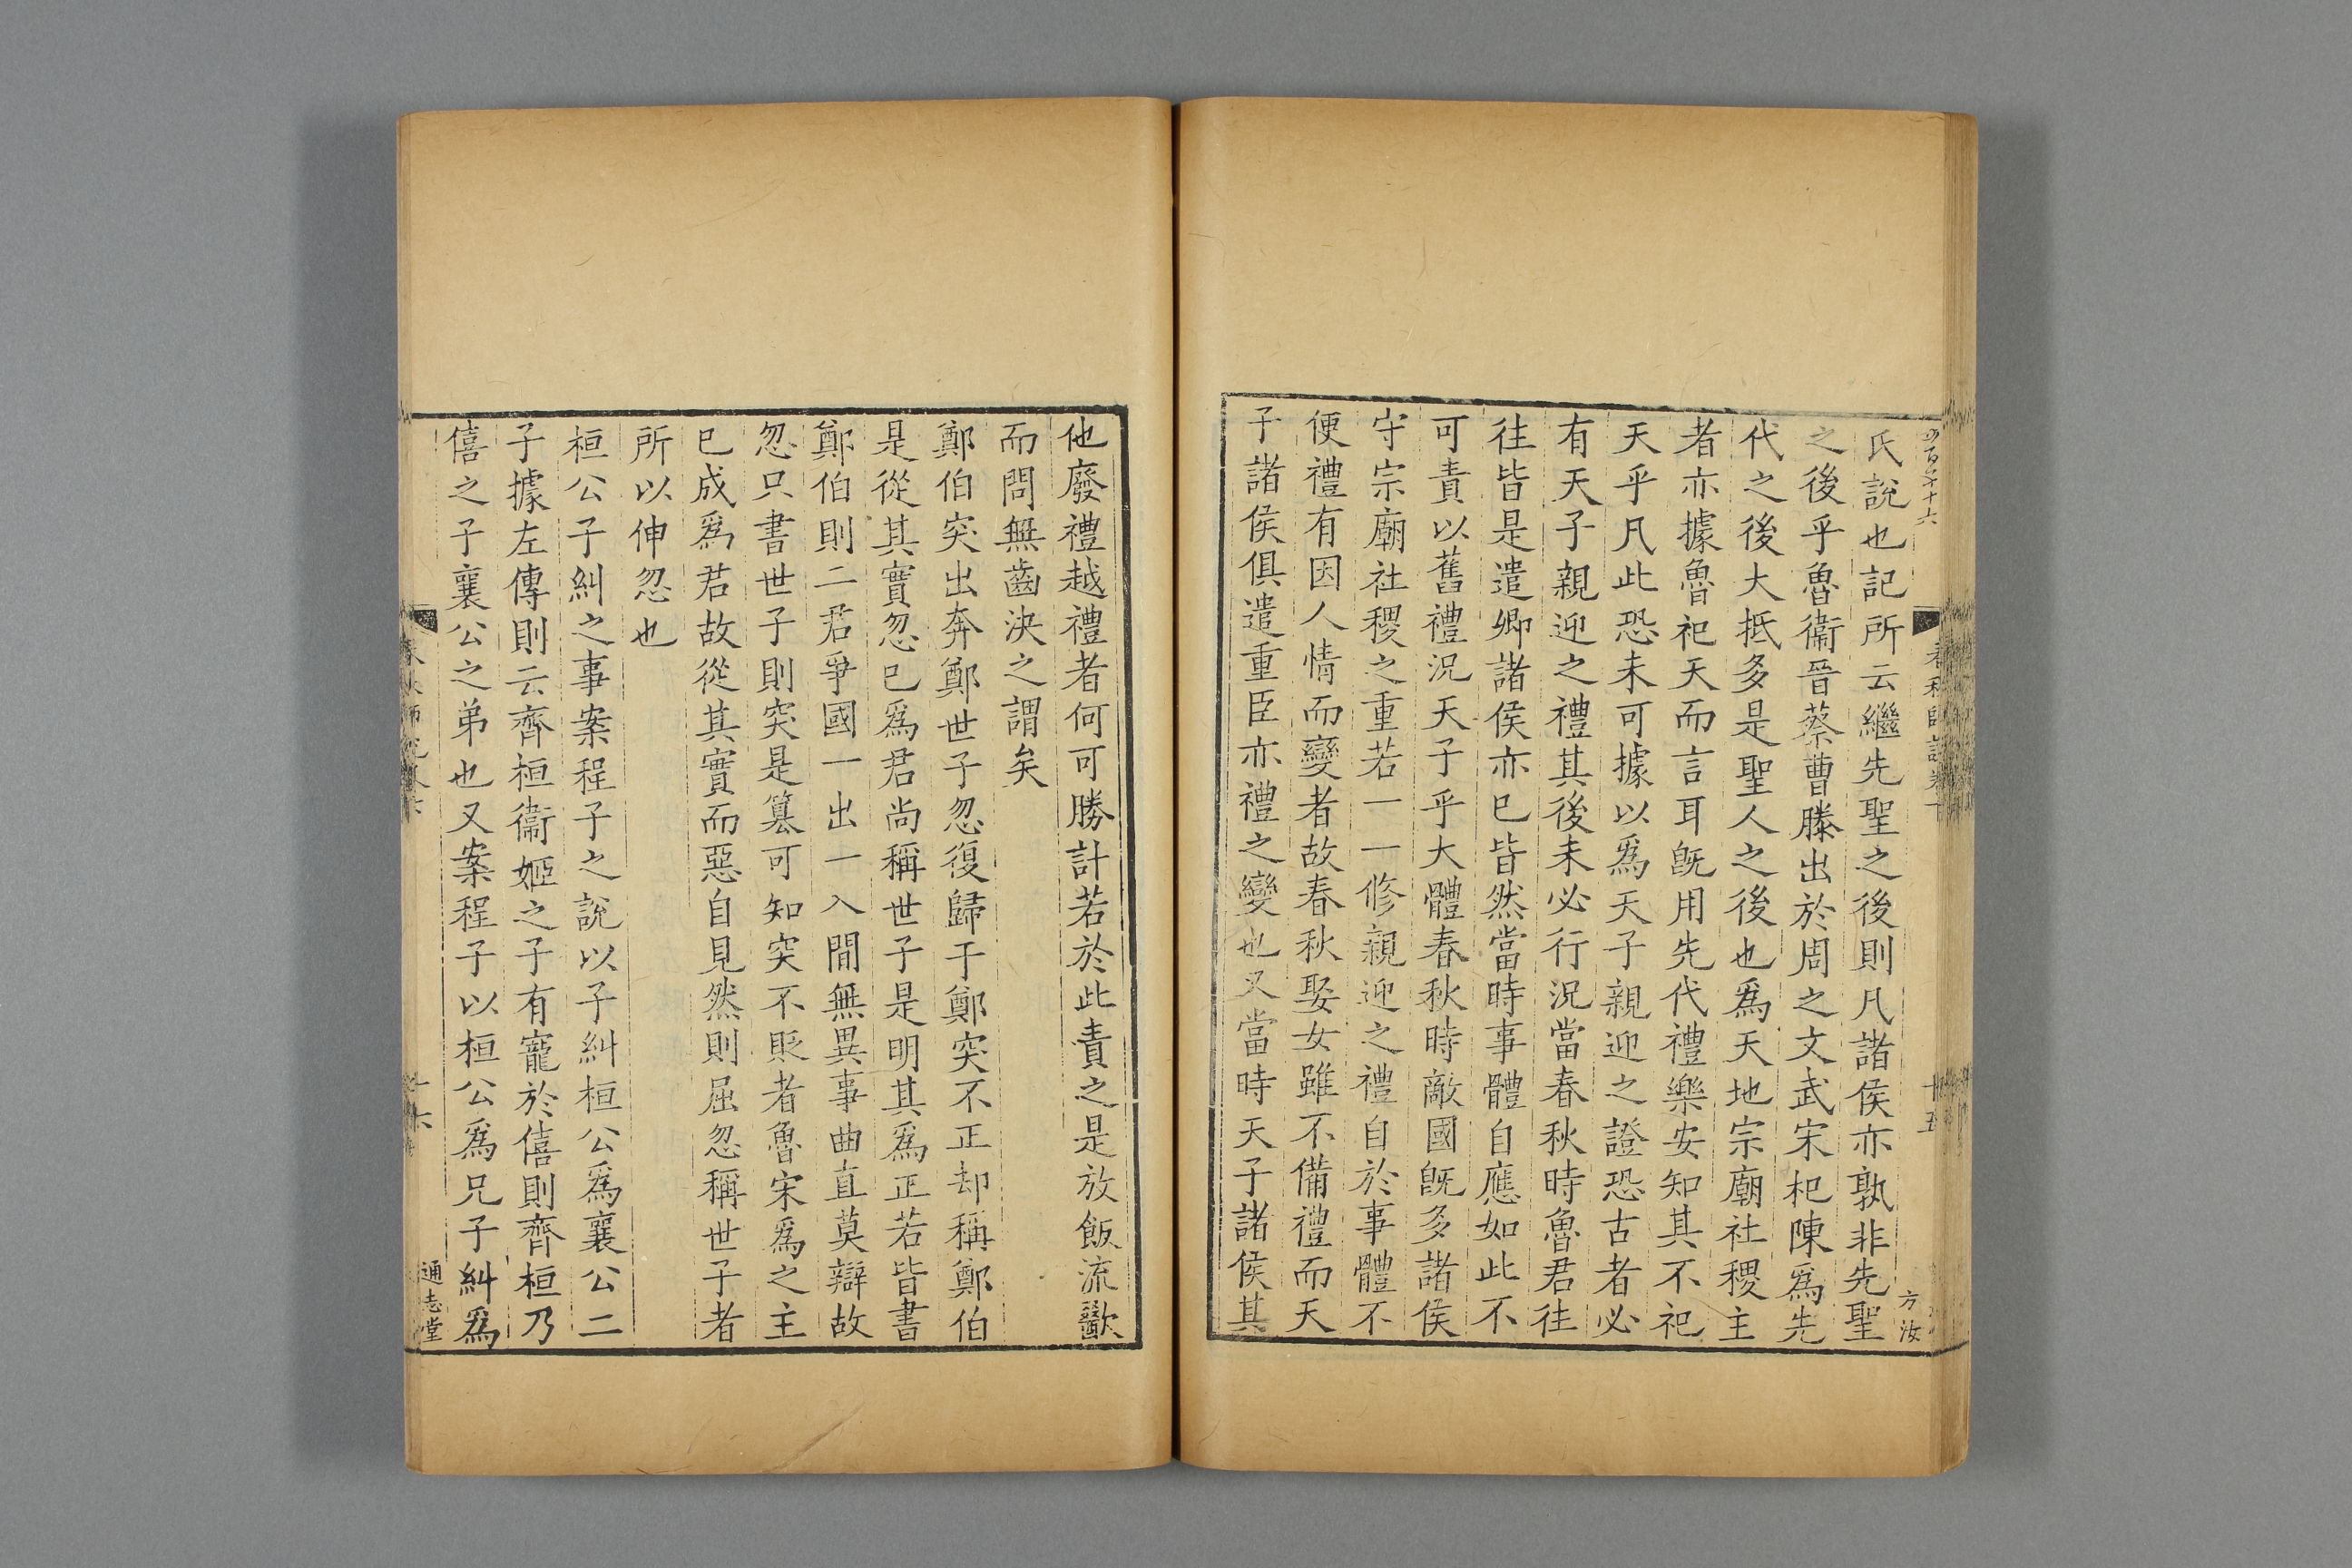 氏說也記所云繼先聖之後則凡諸侯亦孰非先聖
之後乎魯衞晉蔡曹滕出於周之文武宋杞陳爲先
代之後大抵多是聖人之後也爲天地宗廟社稷主
者亦據魯祀天而言耳旣用先代禮樂安知其不祀
天乎凡此恐未可據以爲天子親迎之證恐古者必
有天子親迎之禮其後未必行況當春秋時魯君往
往皆是遣卿諸侯亦已皆然當時事體自應如此不
可責以舊禮況天子乎大體春秋時敵國旣多諸侯
守宗廟社稷之重若一一修親迎之禮自於事體不
便禮有因人情而變者故春秋娶女雖不備禮而天
子諸侯俱遣重臣亦禮之變也又當時天子諸侯其
十五
方汝
他廢禮越禮者何可勝計若於此責之是放飯流歠
而問無齒決之謂矣
鄭伯突出奔鄭世子忽復歸于鄭突不正却稱鄭伯
是從其實忽已爲君尚稱世子是明其爲正若皆書
鄭伯則二君爭國一出一入間無異事曲直莫辯故
忽只書世子則突是篡可知突不貶者魯宋爲之主
已成爲君故從其實而惡自見然則屈忽稱世子者
所以伸忽也
桓公子糾之事案程子之說以子糾桓公爲襄公二
子據左傳則云齊桓衞姬之子有寵於僖則齊桓乃
僖之子襄公之弟也又案程子以桓公爲兄子糾爲
通志堂